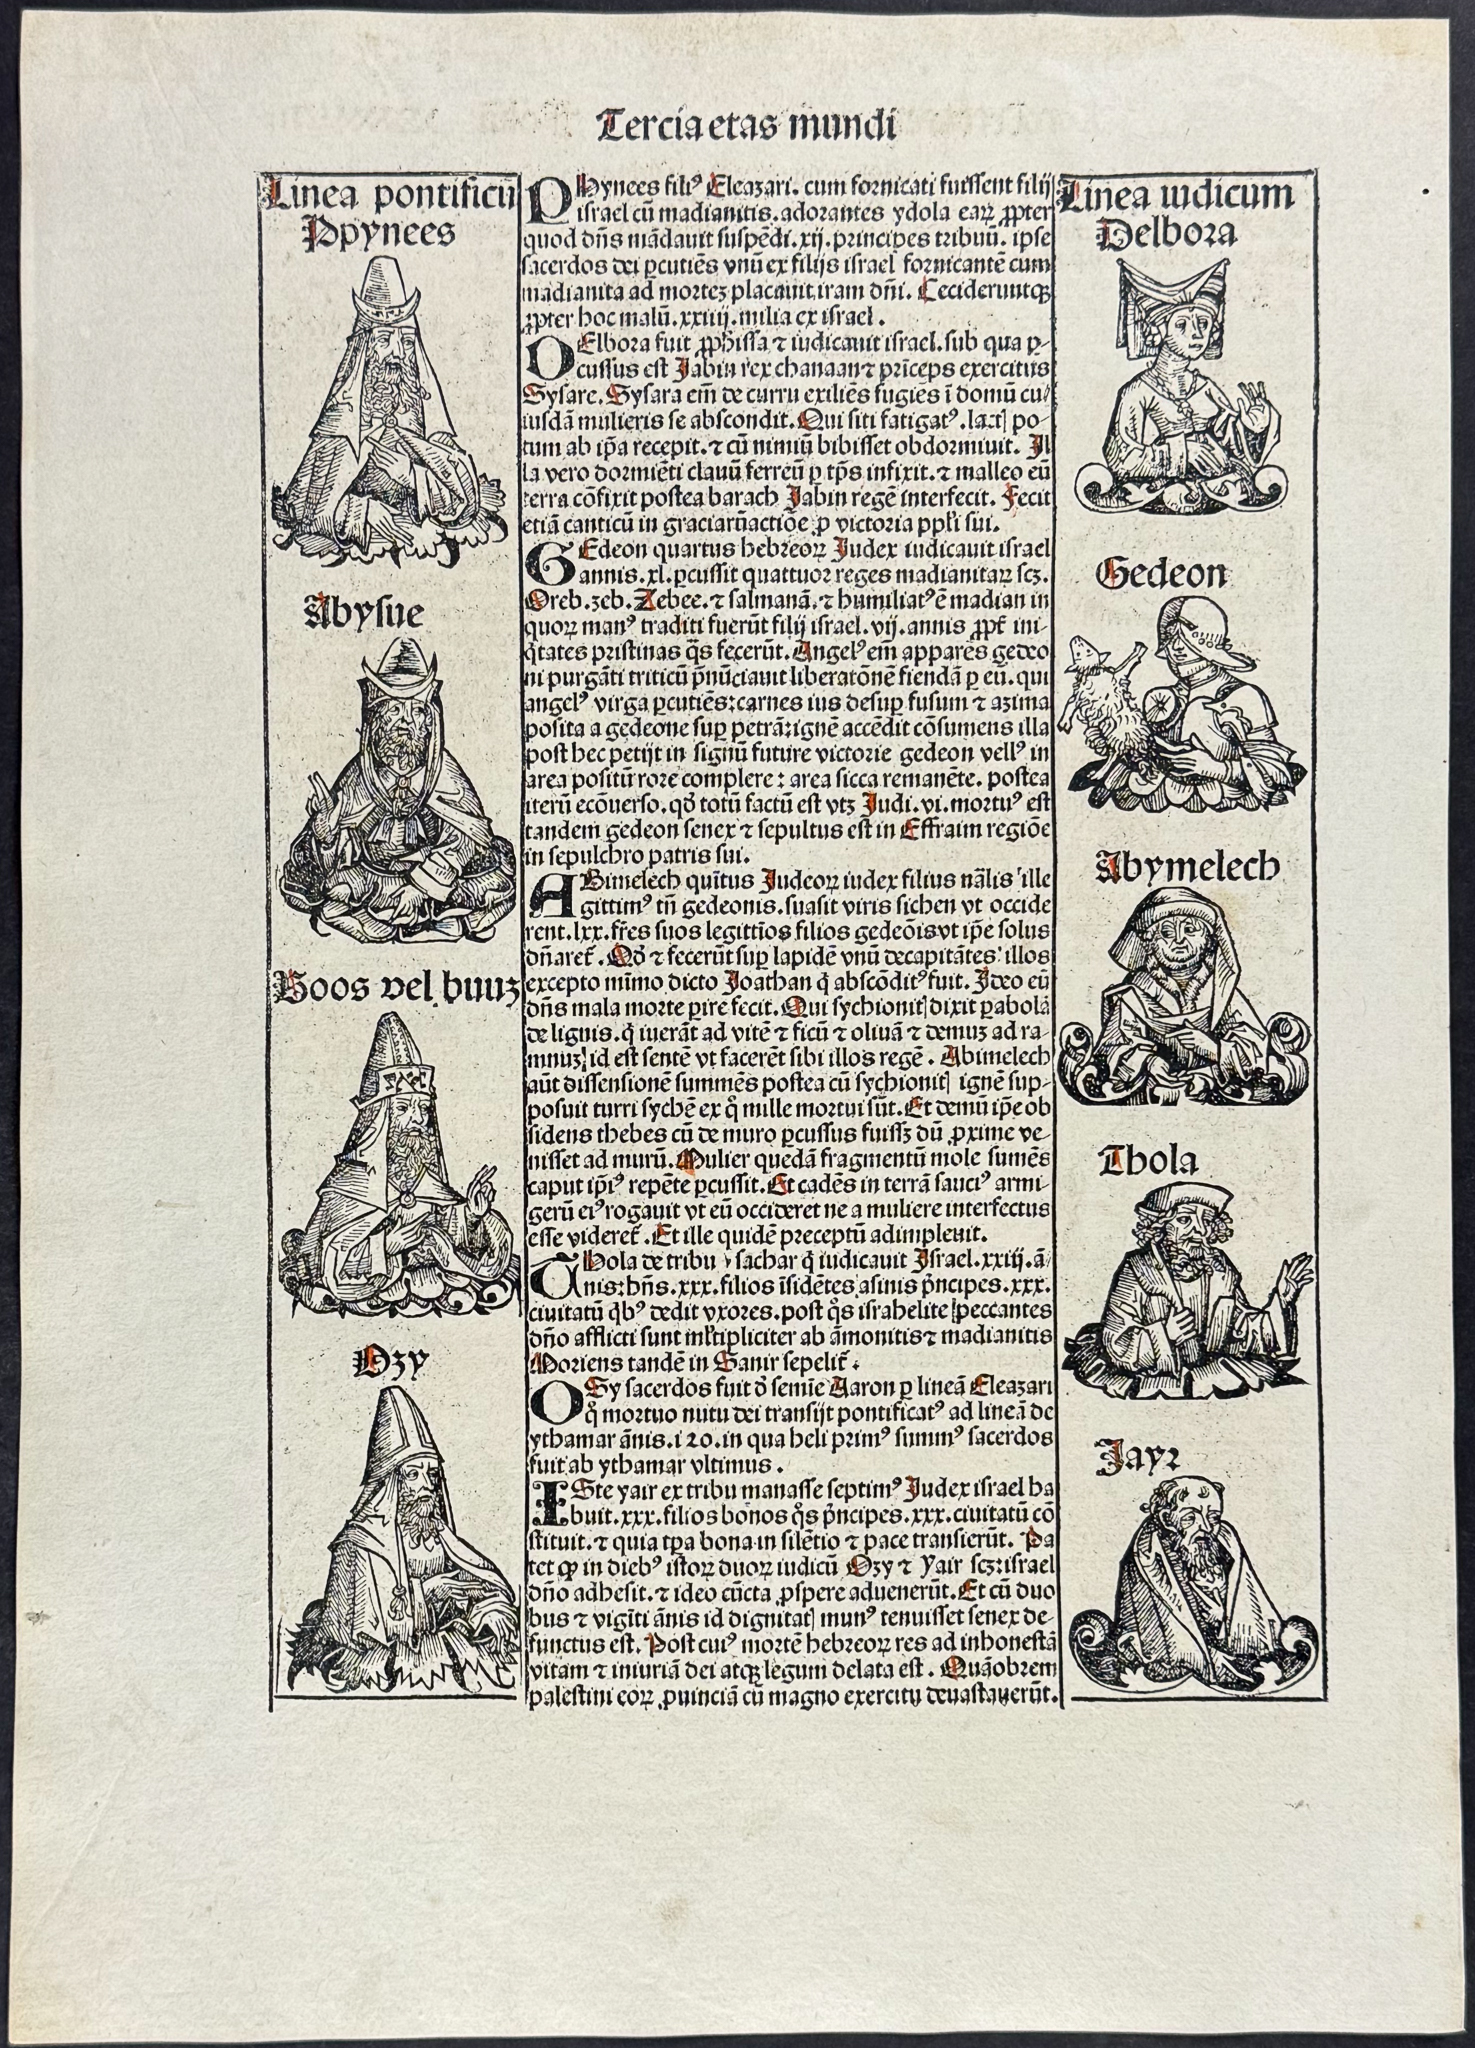 Tercia etas mundi
Linea pontificũ
Ppynees
Abysue
Boos vel buuz
Ozy
PHynees filiꝰ Eleazari. cum fornicati fuissent filij
israel cũ madianitis. adorantes ydola earꝝ ꝓpter
quod dñs mãdauit suspẽdi. xij. principes tribuũ. ipse
sacerdos dei ꝑcutiẽs vnũ ex filijs israel fornicantẽ cum
madianita ad mortẽ placauit iram dñi. Ceciderũtqꝫ
ꝓpter hoc malũ. xxiiij. milia ex israel.
DElbora fuit ꝓphissa ⁊ iudicauit israel. sub qua ꝑ-
cussus est Jabin rex chanaan ⁊ prĩceps exercitus
Sysare. Sysara em̃ de curru exiliẽs fugiẽs ĩ domũ cu/
iusdã mulieris se abscondit. Qui siti fatigatꝰ. lact̃ po-
tum ab ip̃a recepit. ⁊ cũ nimiũ bibisset obdormiuit. Il
la vero dormiẽti clauũ ferreũ ꝑ tp̃s infixit. ⁊ malleo eũ
terra cõfixit postea barach Jabin regẽ interfecit. Fecit
etiã canticũ in graciarũ actiõe ꝓ victoria pp̃li sui.
GEdeon quartus hebreorꝝ Judex iudicauit israel
annis. xl. ꝑcussit quattuor reges madianitarꝝ scꝫ.
Oreb. zeb. Zebee. ⁊ salmanã. ⁊ humiliatꝰ ẽ madian in
quorꝝ manꝰ traditi fuerũt filij israel. vij. annis ꝓpt̃ ini-
q̃tates pristinas q̃s fecerũt. Angelꝰ em̃ apparẽs gedeo
ni purgãti triticũ p̃nũciauit liberatõnẽ fiendã ꝑ eũ. qui
angelꝰ virga ꝑcutiẽs: carnes ius desuꝑ fusum ⁊ azima
posita a gedeone suꝑ petrã: ignẽ accẽdit cõsumens illa
post hec petijt in signũ future victorie gedeon vellꝰ in
area positũ rore complere: area sicca remanẽte. postea
iterũ ecõuerso. qd̃ totũ factũ est vtꝫ Judi. vi. mortuꝰ est
tandem gedeon senex ⁊ sepultus est in Effraim regiõe
in sepulchro patris sui.
ABimelech quĩtus Judeorꝝ iudex filius nãlis ille
gittimꝰ tñ gedeonis. suasit viris sichen vt occide
rent. lxx. fr̃es suos legittĩos filios gedeõis vt ip̃e solus
dñaret̃. Qd̃ ⁊ fecerũt suꝑ lapidẽ vnũ decapitãtes illos
excepto mĩmo dicto Joathan q̃ abscõditꝰ fuit. Ideo eũ
dñs mala morte ꝑire fecit. Qui sychionit̃ dixit ꝑabolã
de lignis. q̃ iuerãt ad vitẽ ⁊ ficũ ⁊ oliuã ⁊ demuꝫ ad ra-
mnuꝫ id est sentẽ vt facerẽt sibi illos regẽ. Abimelech
aũt dissensionẽ summẽs postea cũ sychionit̃ ignẽ sup-
posuit turri sychẽ ex q̊ mille mortui sũt. Et demũ ip̃e ob
sidens thebes cũ de muro ꝑcussus fuissꝫ dũ ꝓxime ve-
nisset ad murũ. Mulier quedã fragmentũ mole sumẽs
caput ip̃iꝰ repẽte ꝑcussit. Et cadẽs in terrã sauciꝰ armi
gerũ eiꝰ rogauit vt eũ occideret ne a muliere interfectus
esse videret̃. Et ille quidẽ preceptũ adimpleuit.
THola de tribu ysachar q̃ iudicauit Israel. xxiij. ã-
nis: hñs. xxx. filios ĩsidẽtes asinis p̃ncipes. xxx.
ciuitatũ q̃bꝰ dedit vxores. post q̃s israhelite peccantes
dño afflicti sunt ml̃tipliciter ab ãmonitis ⁊ madianitis
Moriens tandẽ in Sanir sepelit̃.
OSy sacerdos fuit d̃ semĩe Aaron ꝑ lineã Eleazari
q̊ mortuo nutu dei transijt pontificatꝰ ad lineã de
ythamar ãnis. 120. in qua heli primꝰ summꝰ sacerdos
fuit ab ythamar vltimus.
ISte yair ex tribu manasse septimꝰ Judex israel ha
buit. xxx. filios bonos q̃s p̃ncipes. xxx. ciuitatũ cõ
stituit. ⁊ quia tꝑa bona in silẽtio ⁊ pace transierũt. Pa
tet ꝙ in diebꝰ istorꝝ duorꝝ iudicũ Ozy ⁊ Yair scꝫ: israel
dño adhesit. ⁊ ideo cũcta ꝓspere aduenerũt. Et cũ duo
bus ⁊ vigĩti ãnis id dignitat̃ munꝰ tenuisset senex de-
functus est. Post cuiꝰ mortẽ hebreorꝝ res ad inhonestã
vitam ⁊ iniuriã dei atqꝫ legum delata est. Quãobrem
palestini eorꝝ ꝓuinciã cũ magno exercitu deuastauerũt.
Linea iudicum
Delbora
Gedeon
Abymelech
Thola
Jayr